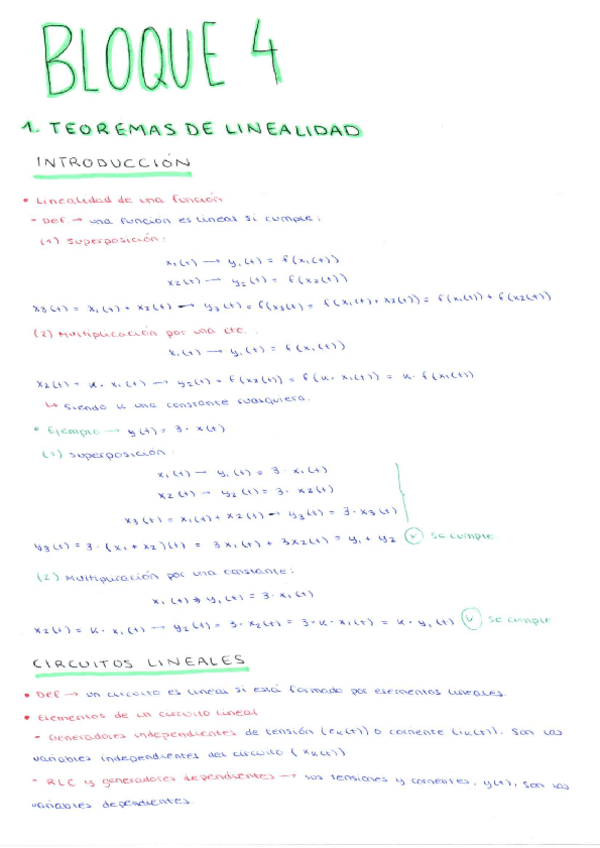 BLOQUE 4
1. TEOREMAS DE LINEALIDAD
INTRODUCCIÓN
• Linealidad de una función
- Def. → una función es lineal si cumple:
(1) Superposición:
x₁(t) → y₁(t) = f(x₁(t))
x₂(t) → y₂(t) = f(x₂(t))
x₃(t) = x₁(t) + x₂(t) → y₃(t) = f(x₃(t)) = f(x₁(t) + x₂(t)) = f(x₁(t)) + f(x₂(t))
(2) Multiplicación por una cte.:
x₁(t) → y₁(t) = f(x₁(t))
x₂(t) = k · x₁(t) → y₂(t) = f(x₂(t)) = f(k · x₁(t)) = k · f(x₁(t))
↳ Siendo k una constante cualquiera.
• Ejemplo → y(t) = 3 · x(t)
(1) Superposición:
x₁(t) → y₁(t) = 3 · x₁(t)
x₂(t) → y₂(t) = 3 · x₂(t)
x₃(t) = x₁(t) + x₂(t) → y₃(t) = 3 · x₃(t)
y₃(t) = 3 · (x₁ + x₂)(t) = 3x₁(t) + 3x₂(t) = y₁ + y₂ ✓ se cumple
(2) Multiplicación por una constante:
x₁(t) → y₁(t) = 3 · x₁(t)
x₂(t) = k · x₁(t) → y₂(t) = 3 · x₂(t) = 3 · k · x₁(t) = k · y₁(t) ✓ se cumple
CIRCUITOS LINEALES
• Def → un circuito es lineal si está formado por elementos lineales.
• Elementos de un circuito lineal
- Generadores independientes de tensión (eₖ(t)) o corriente (iₖ(t)). Son las
variables independientes del circuito (xₖ(t))
- RLC y generadores dependientes → sus tensiones y corrientes, y(t), son las
variables dependientes.